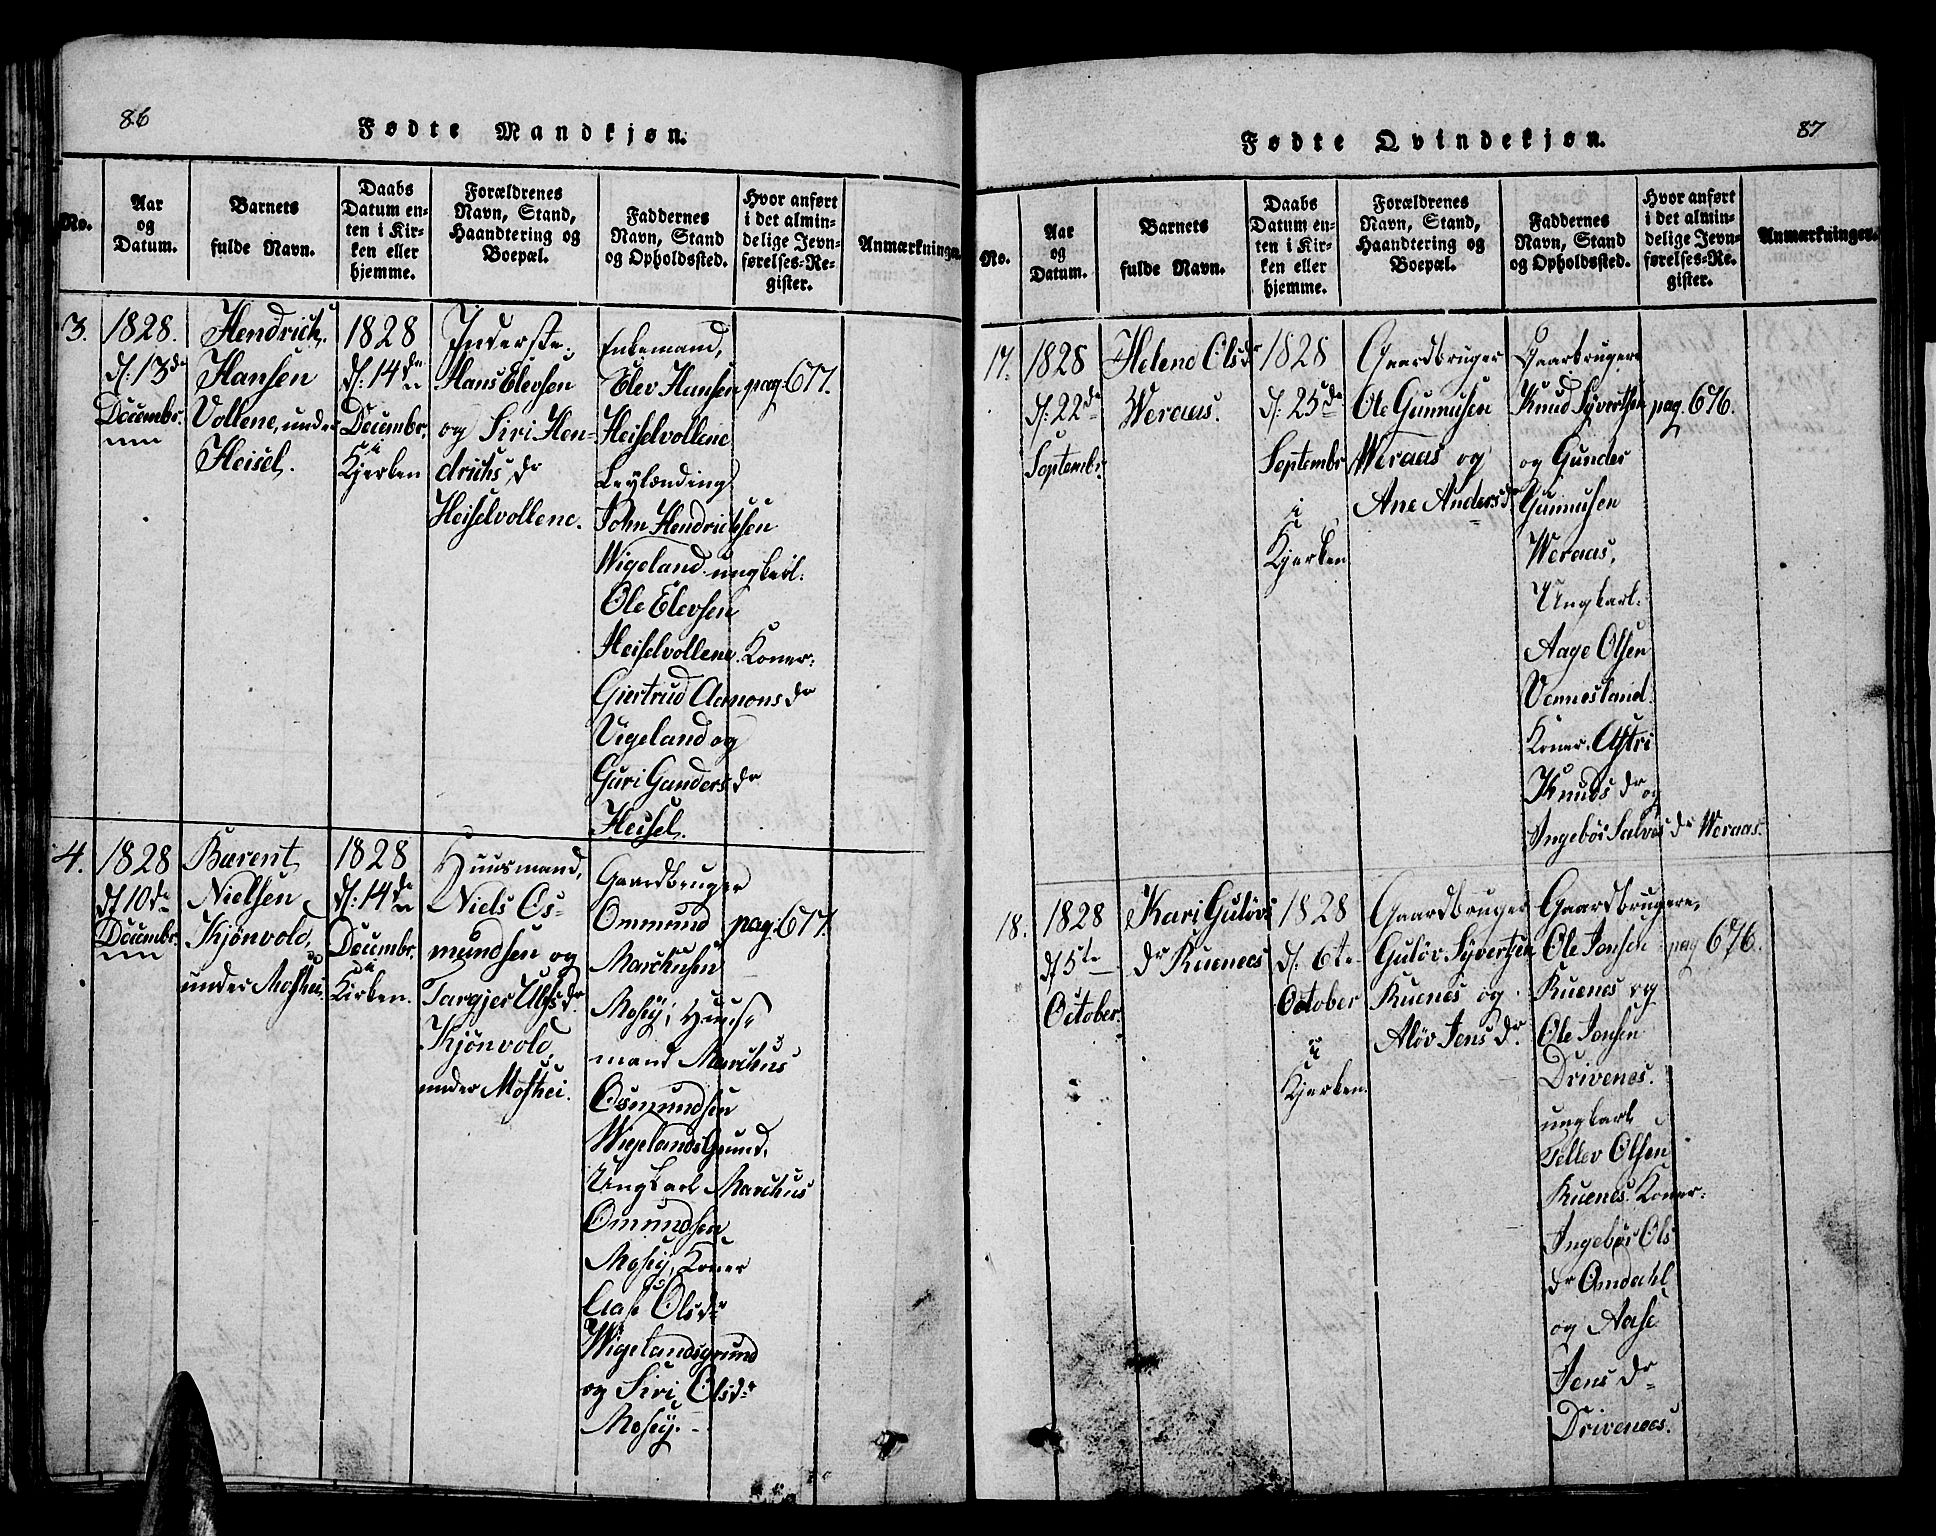 86
Fødte Mandkjøn.
No.
Aar
og
Datum.
Barnets
fulde Navn.
Daabs
Datum en-
ten i Kir-
ken eller
hjemme.
Forældrenes
Navn, Stand,
Haandtering og
Boepæl.
Faddernes
Navn, Stand
og Opholdssted.
Hvor anført
i det almin-
delige Jevn-
førelses-Re-
gister.
Anmærkninger.
3.
1828.
d: 13de
Decembr.
Hendrich
Hansen
Vollene, under
Heisel.
1828
d: 14de
Decembr.
i
Kjerken
Inderste.
Hans Elevsen
og Siri Hen-
drichs dr
Heiselvollene.
Enkemand,
Elev Hansen
Heiselvollene
Leylænding
John Hendrichsen
Wigeland. ungkarl:
Ole Elevsen
Heiselvollene. Koner:
Giertrud Aamons dr
Vigeland og
Guri Gunders dr
Heisel.
pag: 677.
4.
1828
d 10de
Decembr.
Bærent
Nielsen
Kjönvold,
under Moshei.
1828
d: 14de
Decembr.
i
Kirken.
Huusmand,
Niels Os-
mundsen og
Targjer Ulfs dr
Kjönvold,
under Moshei.
Gaardbruger
Ommund
Marchusen
Mosey, Huus-
mand Marchus
Osmundsen
Wigelands Grund,
Ungkarl Marchus
Omundsen
Mosey, Koner
Aase Olsdr
Wigelandsgrund
og Siri Olsdr
Mosey.
pag: 677.
87
Fødte Qvindekjøn.
No.
Aar
og
Datum.
Barnets
fulde Navn.
Daabs
Datum en-
ten i Kir-
ken eller
hjemme.
Forældrenes
Navn, Stand,
Haandtering og
Boepæl.
Faddernes
Navn, Stand
og Opholdssted.
Hvor anført
i det almin-
delige Jevn-
førelses-Re-
gister.
Anmærkninger.
17.
1828
d: 22de
Septembr.
Helene Olsdr
Weraas.
1828
d: 25de
Septembr
i
Kjerken
Gaardbruger
Ole Gunnusen
Weraas og
Ane Anders dr
Gaarbrugere
Knud Syvertsen
og Gunder
Gunnusen
Weraas,
Ungkarl:
Aage Olsen
Vennesland.
Koner. Astri
Knuds dr og
Ingebör Salves dr Weraas.
pag. 676.
18.
1828
d 5te
October.
Kari Gulövs
dr Kuenes
1828
d: 6te
October
i
Kjerken.
Gaardbruger
Gulöv Syvertsen
Kuenes og
Alöv Jens dr
Gaardbrugere,
Ole Jonsen
Kuenes og
Ole Jonsen
Drivenes.
ungkarl
Tellev Olsen
Kuenes. Koner:
Ingebör Ols
dr Omdahl
og Aase
Jens dr
Drivenees.
pag 676.